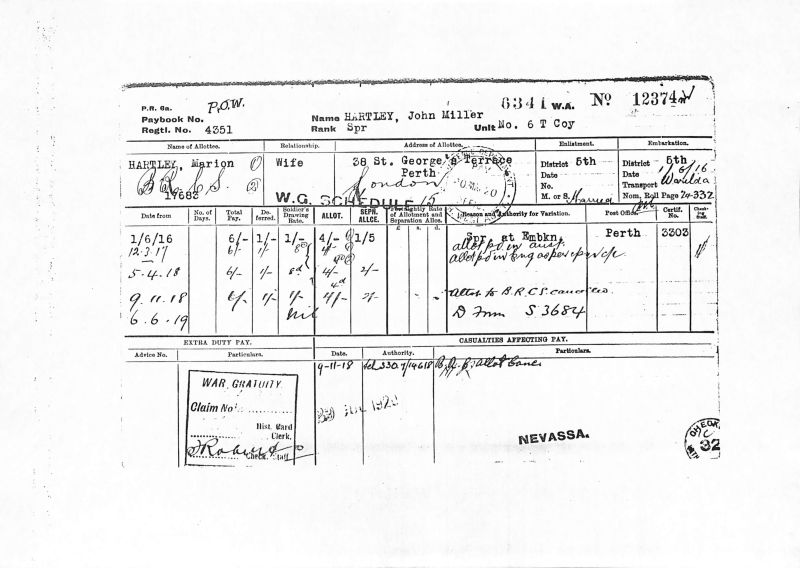 P.R. 6a. P.O.W. 6341 W.A. No 12374
Paybook No. Name HARTLEY, John Miller
Regtl. No. 4351 Rank Spr Unit No. 6 T Coy
Name of Allottee. Relationship. Address of Allottee. Enlistment. Embarkation.
HARTLEY, Marion Wife 38 St. George's Terrace District 5th District 5th
Perth Date Date 1/6/16
London No. Transport Warilda
17682 W.G. SCHEDULE M. or S. Married Nom. Roll Page 24-332
Date from No. of Days. Total Pay. Deferred. Soldier's Drawing Rate. ALLOT. SEPN. ALLCE. Fortnightly Rate of Allotment and Separation Allce. Reason and Authority for Variation. Post Office. Certif. No. Checking
£ s. d.
1/6/16 6/- 1/- 1/- 4/- 1/5 Spr. at Embkn. Perth 3303
12.3.17 6/- 1/- 4/-
5-4.18 6/- 1/- 8d 4/- 2/-
9.11.18 6/- 1/- 1/- 4/- 2/- Allot to B.R.C.S. cancelled
6.6.19 Nil D Fmn S 3684
EXTRA DUTY PAY. CASUALTIES AFFECTING PAY.
Advice No. Particulars. Date. Authority. Particulars.
9-11-18
WAR GRATUITY.
Claim No.
Hist. Card
Clerk.
Check. Staff
NEVASSA.
32